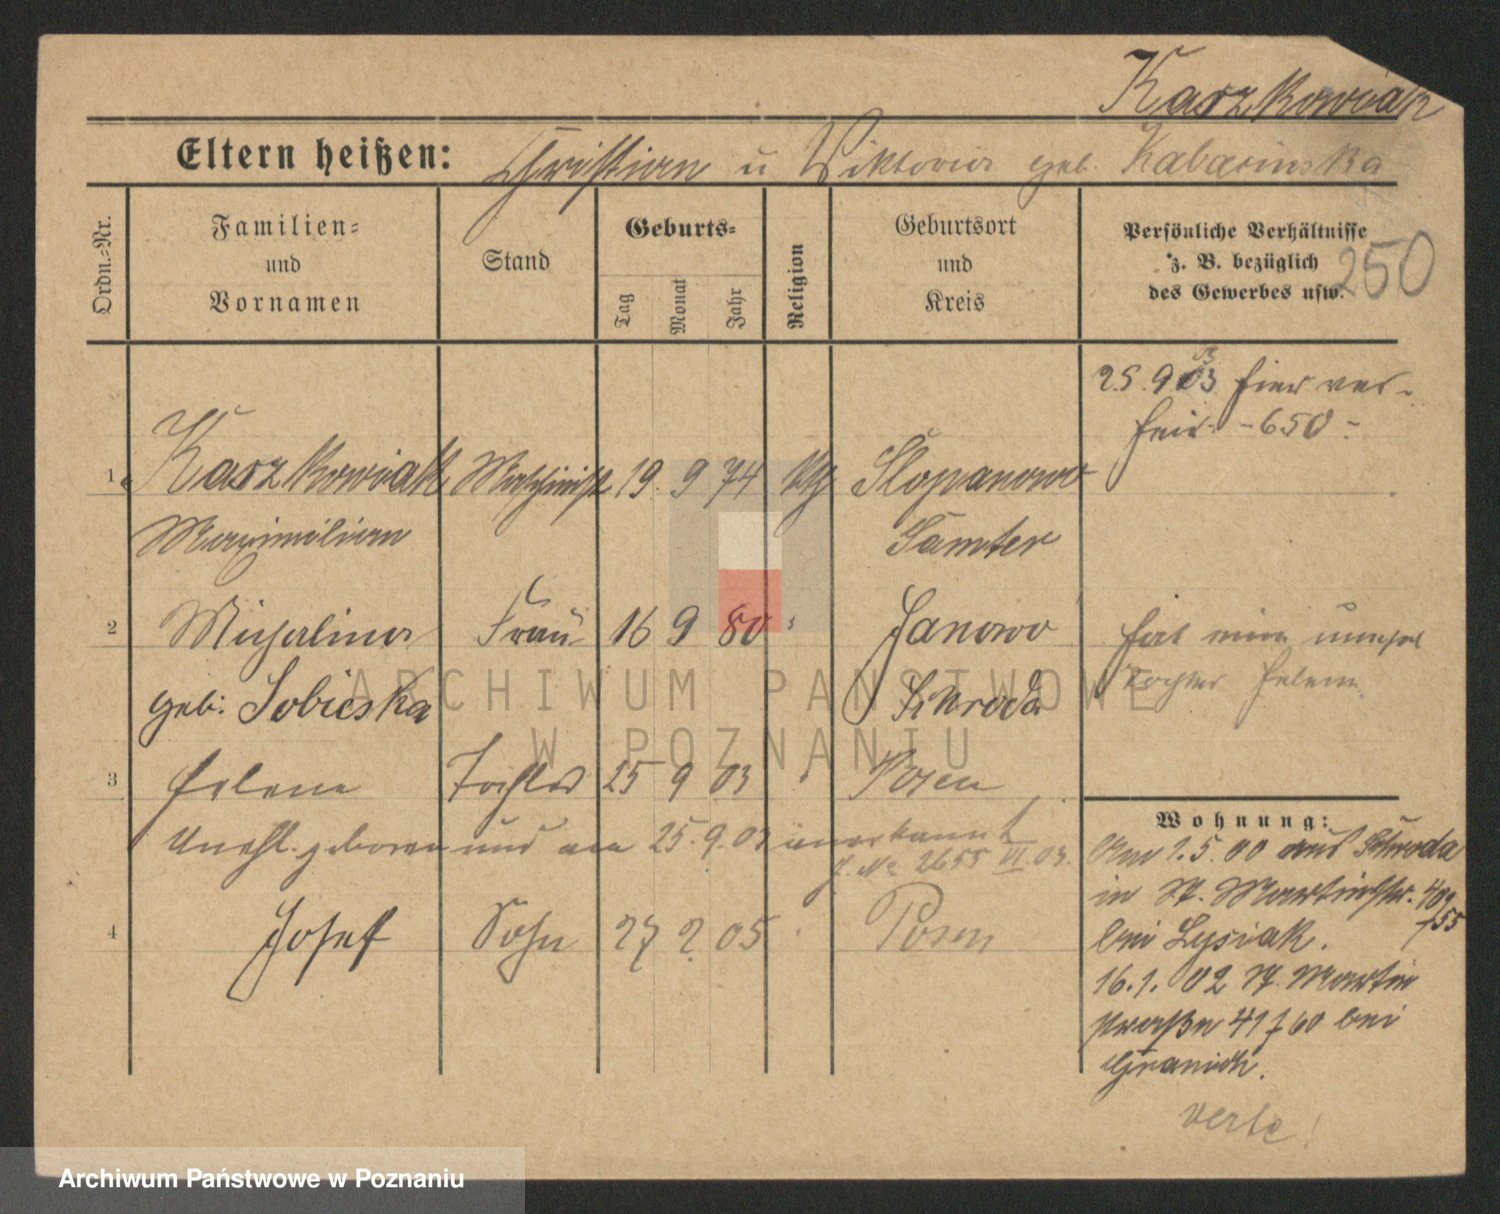 Kaszkowiak
Eltern heißen: Christian u Viktoria geb. Kabacinska
Ordn.-Nr.
Familien- und Vornamen
Stand
Geburts-
Tag
Monat
Jahr
Religion
Geburtsort und Kreis
Persönliche Verhältnisse
z. B. bezüglich
des Gewerbes usw.
250
25.9 03 hier ver-
heir. - 650 -
1 Kaszkowiak Maschinist 19. 9 74 kth Slopanowo
Maximilian Samter
2 Michalina Frau 16 9 80 " Janowo
geb. Sobieska Schroda
hat eine unehel
Tochter Helene.
3 Helene Tochter 25 9 03 " Posen
Unehl. geboren und am 25.9.03 anerkannt
J. No 2655 VI 03.
4 Josef Sohn 27 2 05 " Posen
Wohnung:
Am 1.5.00 aus Schroda
in St. Martinstr. 40a
f55
bei Lysiak.
16.1.02 St. Martin
straße 41 f 60 bei
verte!
ARCHIWUM PAŃSTWOWE
W POZNANIU
Archiwum Państwowe w Poznaniu